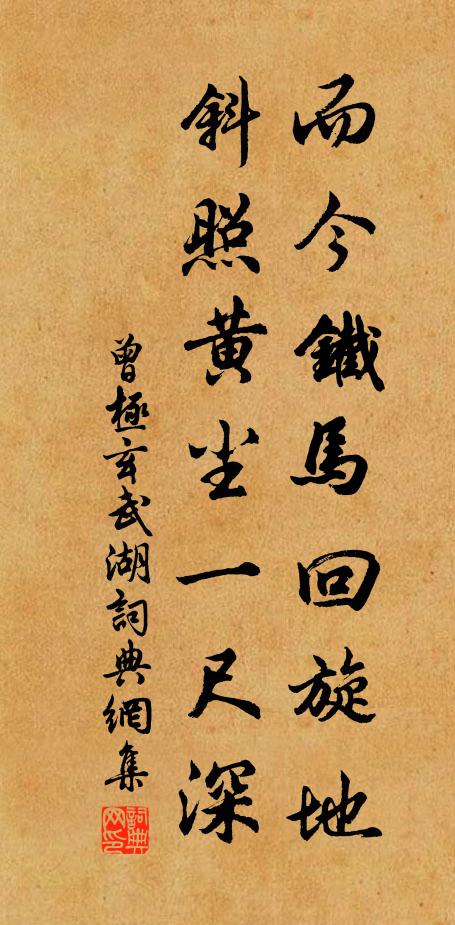 而今鐵馬回旋地
斜照黄尘一尺深
曾極玄武湖詞典網集
詞典网印